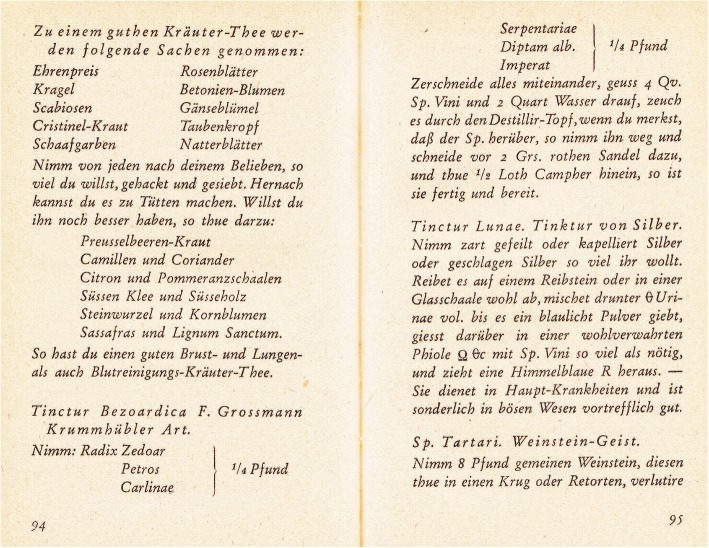 Zu einem guthen Kräuter-Thee wer-
den folgende Sachen genommen:
Ehrenpreis Rosenblätter
Kragel Betonien-Blumen
Scabiosen Gänseblümel
Cristinel-Kraut Taubenkropf
Schaafgarben Natterblätter
Nimm von jeden nach deinem Belieben, so
viel du willst, gehackt und gesiebt. Hernach
kannst du es zu Tütten machen. Willst du
ihn noch besser haben, so thue darzu:
Preusselbeeren-Kraut
Camillen und Coriander
Citron und Pommeranzschaalen
Süssen Klee und Süsseholz
Steinwurzel und Kornblumen
Sassafras und Lignum Sanctum.
So hast du einen guten Brust- und Lungen-
als auch Blutreinigungs-Kräuter-Thee.
Tinctur Bezoardica F. Grossmann
Krummhübler Art.
Nimm: Radix Zedoar
Petros 1/4 Pfund
Carlinae
94
Serpentariae
Diptam alb. 1/4 Pfund
Imperat
Zerschneide alles miteinander, geuss 4 Qv.
Sp. Vini und 2 Quart Wasser drauf, zeuch
es durch den Destillir-Topf, wenn du merkst,
daß der Sp. herüber, so nimm ihn weg und
schneide vor 2 Grs. rothen Sandel dazu,
und thue 1/2 Loth Campher hinein, so ist
sie fertig und bereit.
Tinctur Lunae. Tinktur von Silber.
Nimm zart gefeilt oder kapelliert Silber
oder geschlagen Silber so viel ihr wollt.
Reibet es auf einem Reibstein oder in einer
Glasschaale wohl ab, mischet drunter Uri-
nae vol. bis es ein blaulicht Pulver giebt,
giesst darüber in einer wohlverwahrten
Phiole mit Sp. Vini so viel als nötig,
und zieht eine Himmelblaue R heraus. —
Sie dienet in Haupt-Krankheiten und ist
sonderlich in bösen Wesen vortrefflich gut.
Sp. Tartari. Weinstein-Geist.
Nimm 8 Pfund gemeinen Weinstein, diesen
thue in einen Krug oder Retorten, verlutire
95